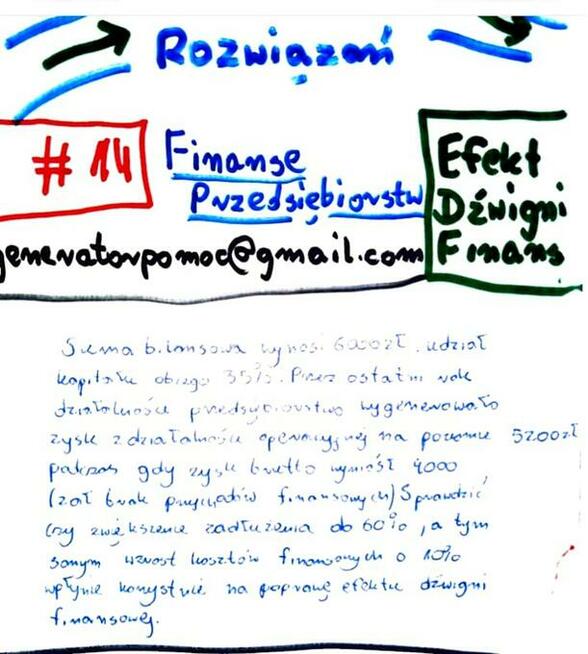 Rozwiązań
# 14
Finanse
Przedsiębiorstw
Efekt
Dźwigni
Finans
generatorpomoc@gmail.com
Suma bilansowa wynosi 6000zł, udział
kapitału obcego 35%. Przez ostatni rok
działalności przedsiębiorstwo wygenerowało
zysk z działalności operacyjnej na poziomie 5200zł
podczas gdy zysk brutto wyniósł 4000
(zał brak przychodów finansowych) Sprawdzić
czy zwiększenie zadłużenia do 60%, a tym
samym wzrost kosztów finansowych o 10%
wpłynie korzystnie na poprawę efektu dźwigni
finansowej.